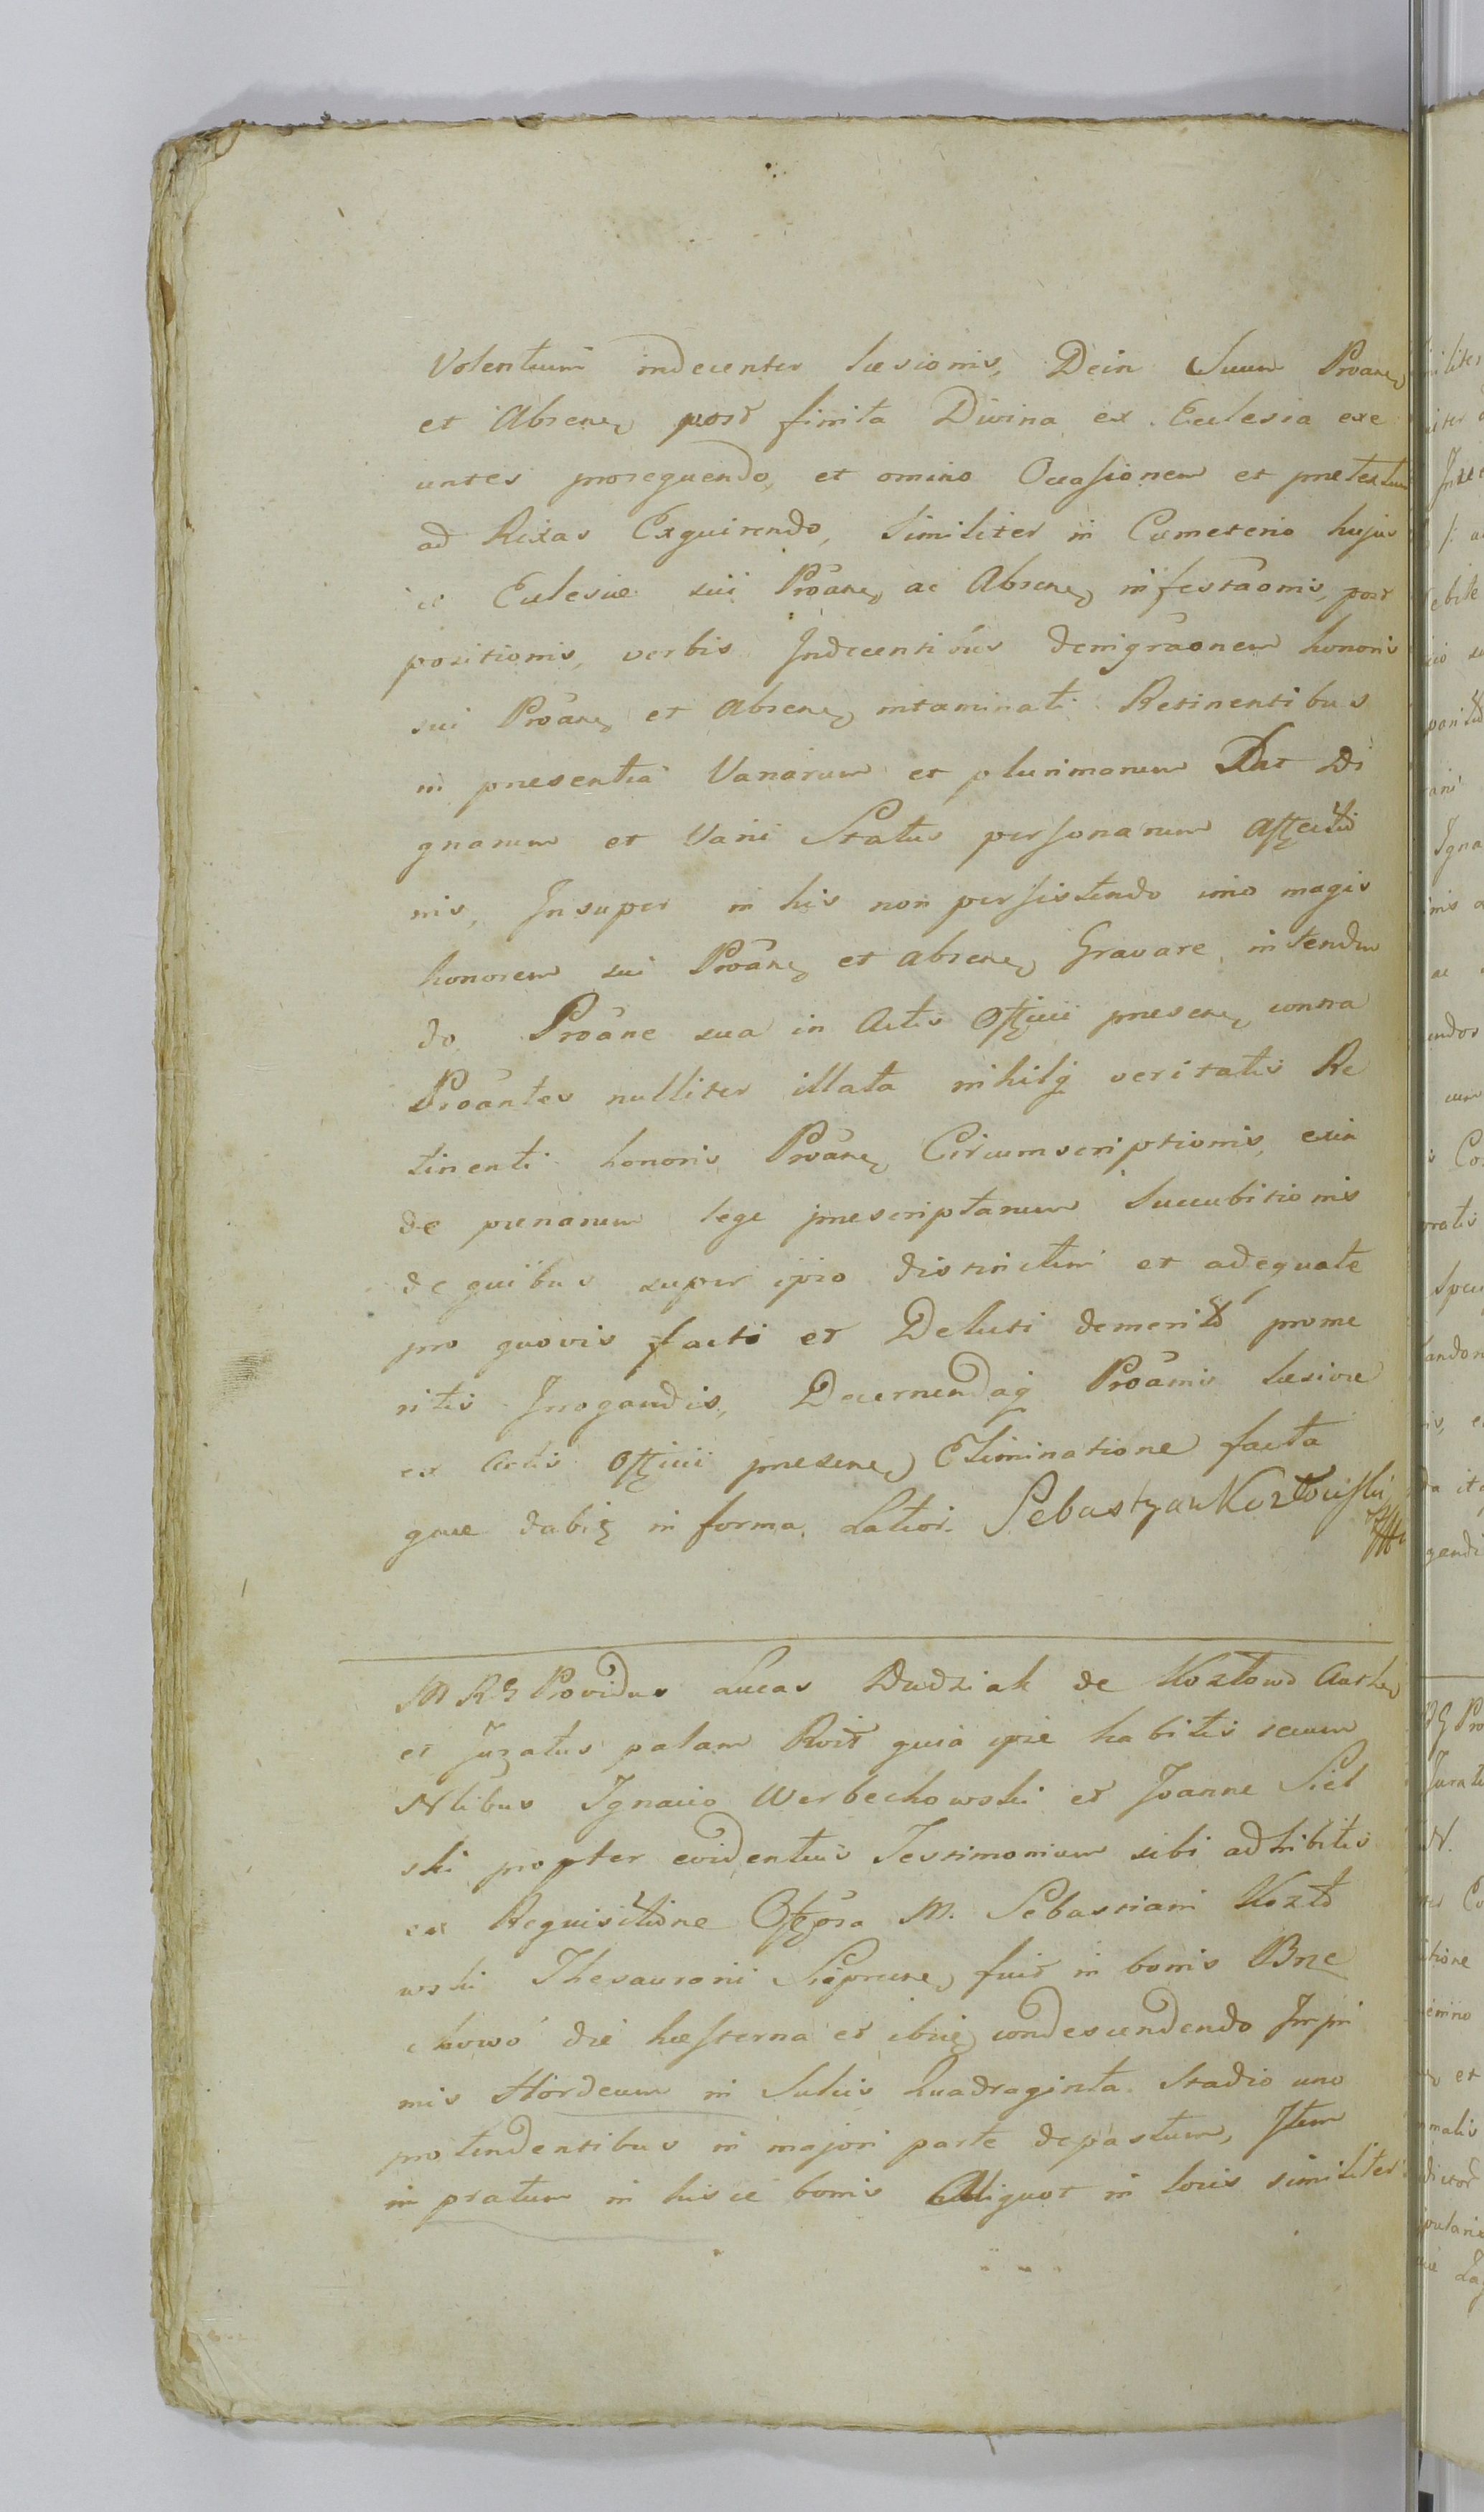 Volentium indecenter læsionis, Dein Suum Proane
et Absene post finita Divina ex Eulesia exe
untes prosequendo, et omino Occasionem et pretextum
ad Rixas Exquirendo, Similiter in Cæmeterio hujus
ce Eulesiæ sui Proane ac Absene infestaonis, post
positionis, verbis Indecentibus denigraonem honoris
sui Proane et Absene intaminati Retinentibus
in presentia Variarum et plurimarum Dat Di
gnarum et Varii Status personarum affectio
nis, Insuper in his non persistendo imo magis
honorem sui Proane et absene Gravare intenden
do Proane sua in Actis Officii presene contra
Proantes nulliter illata nihilq veritatis Re
tinenti honoris Proane Circumscriptionis, exin
de penarum lege prescriptarum Succubitionis
de quibus super ipso distinctim et adequate
pro quovis facti et Delicti demerito prome
ritis Irrogandis, Decernendaq Proanis læsivæ
ex Actis Officii presene Eliminatione facta
que dabit in forma Latiori Sebastyan Kozłowski

M RG Providus Lucas Dudziak de Kozłowo Authe
et Juratus palam Rvit quia ipse habitis secum
Nlibus Ignacio Werbechowski et Joanne Siel
ski propter evidentius Testimonium sibi adhibitis
ex Requisitione M. Sebastiani Kozło
wski Thesaurarii fuit in bonis Brze
chowo die hesterna et ibiq condescendendo Impri
mis Hordeum in Sulcis Quadraginta Stadio uno
protendentibus in majori parte depastum, Item
in pratum in hisce bonis Aliquot in locis similiter